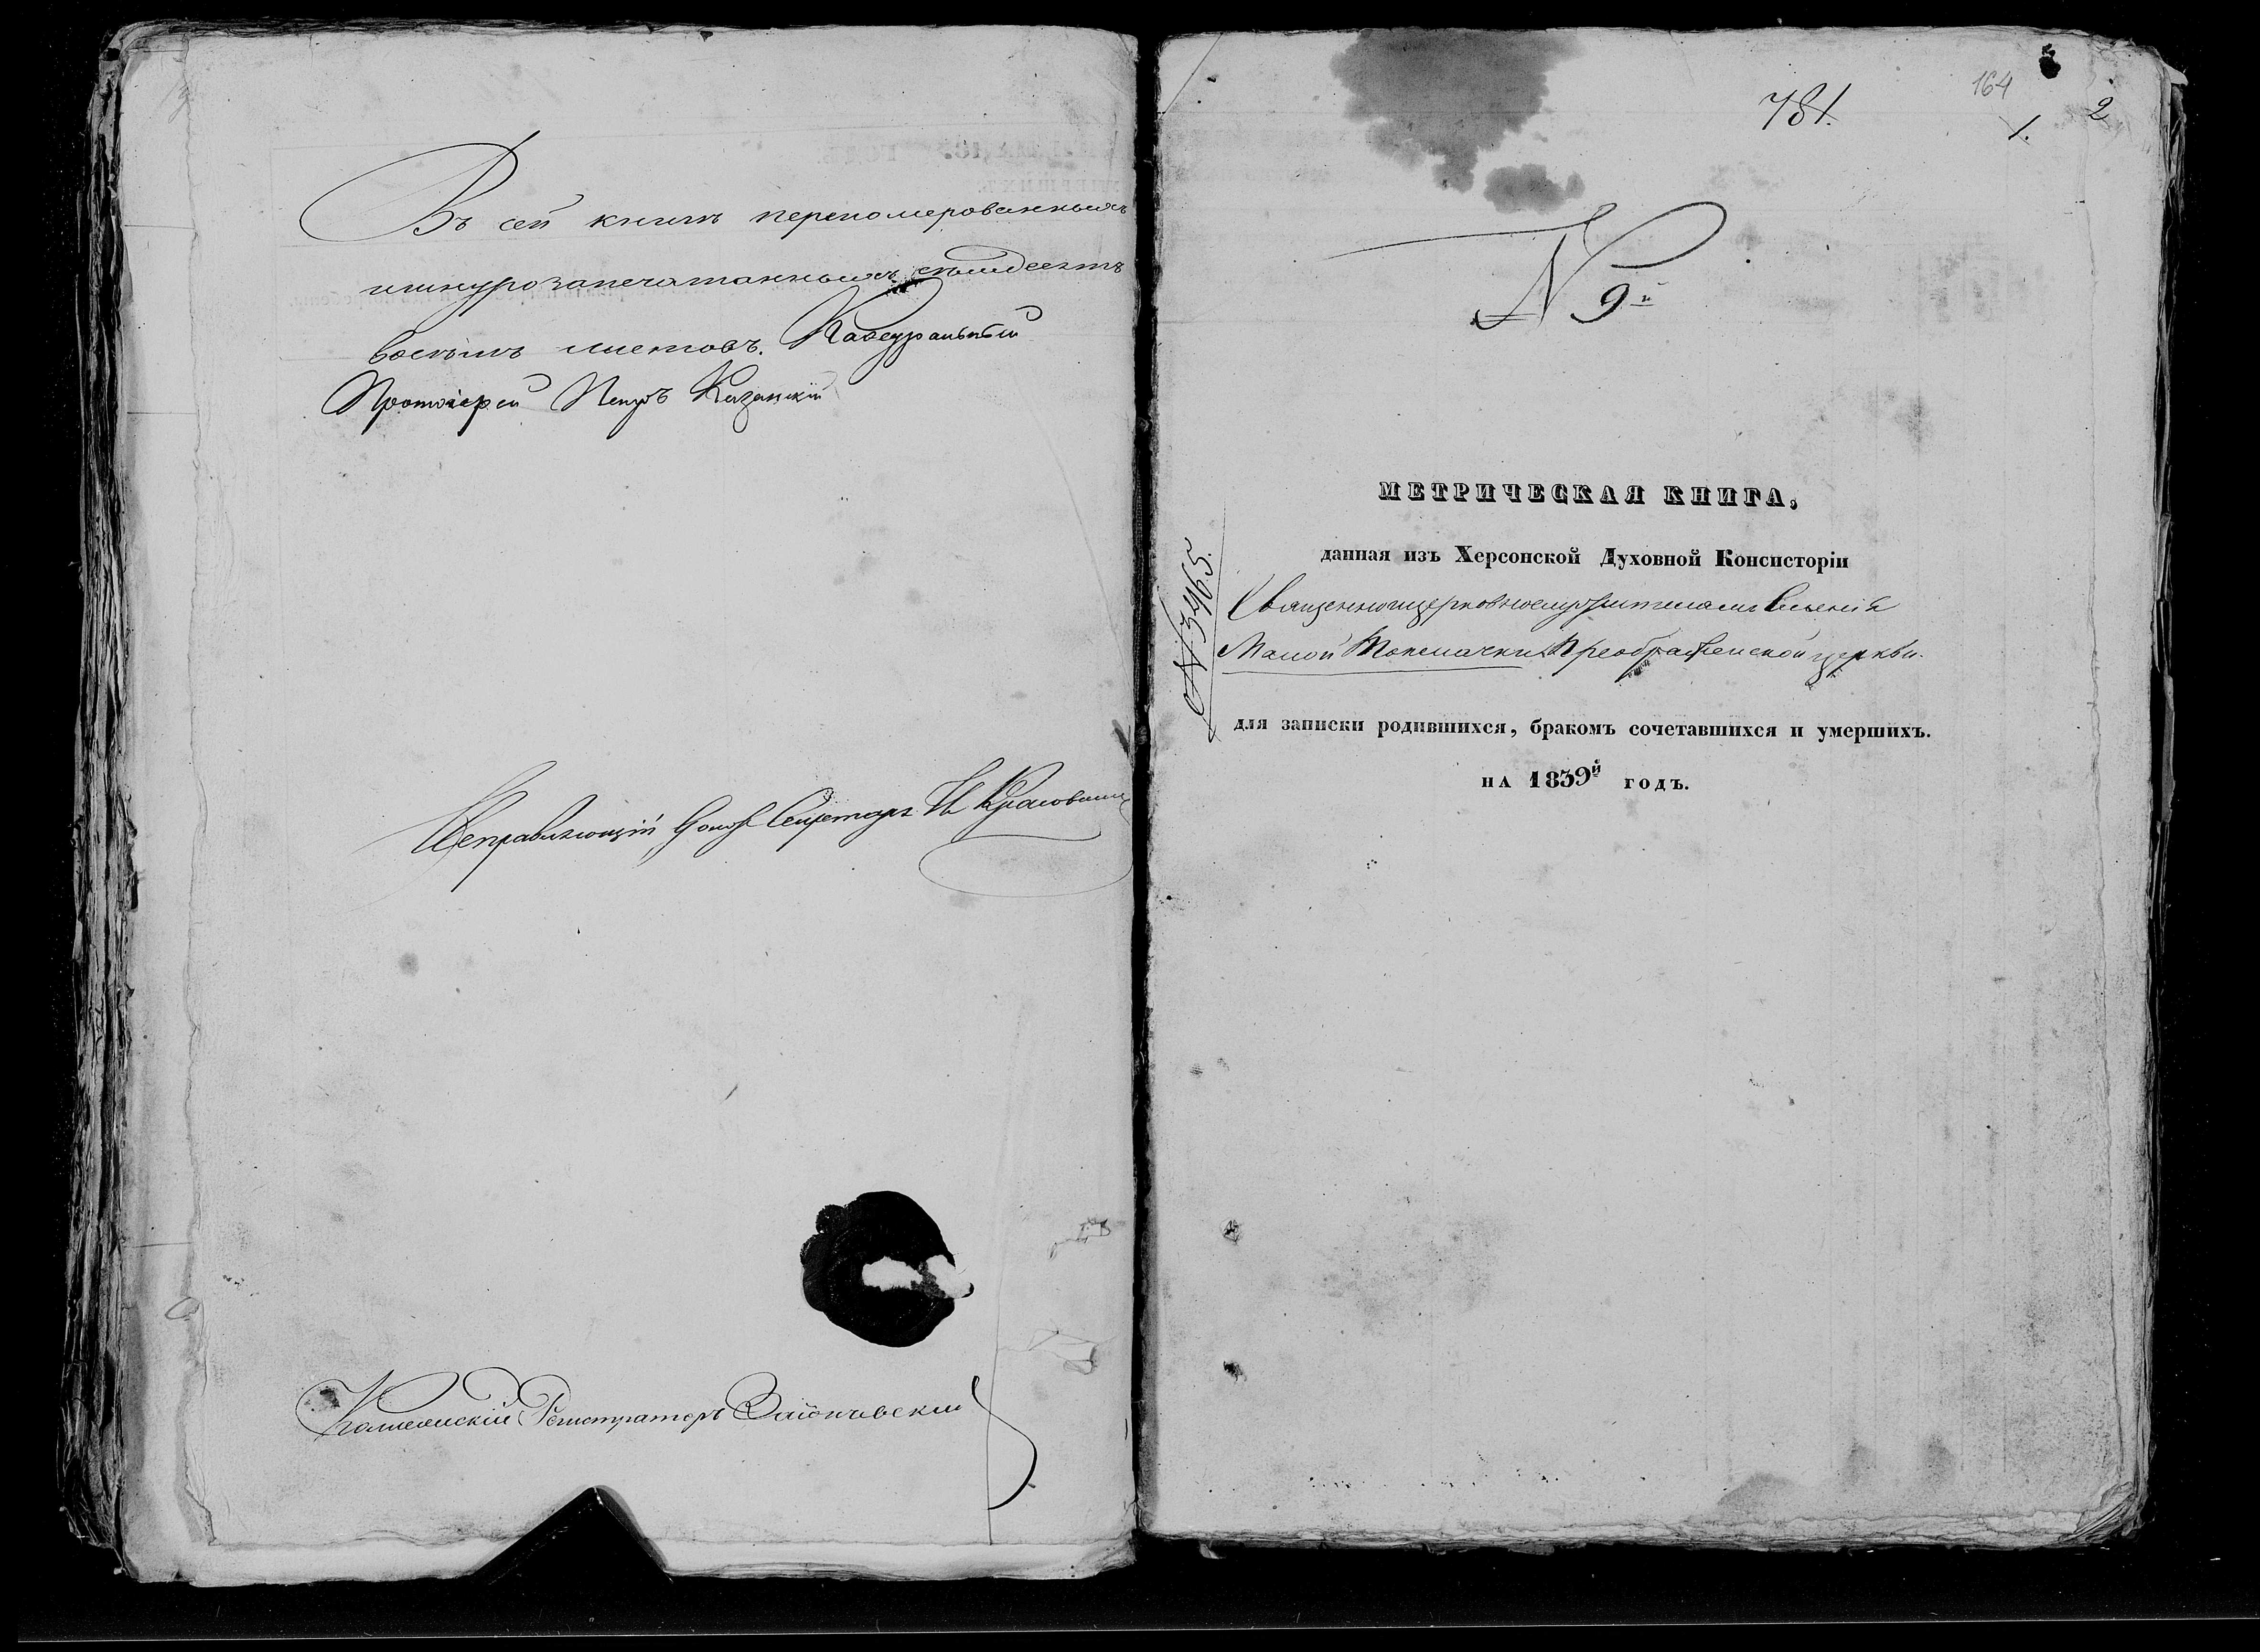 Въ сей книгѣ перепомерованныхъ
шнурозапечатанныхъ семьдесятъ
восемь листовъ. Кафедральный
Протоіерей Петръ Казанскій
Исправляющій долж Секретаря И Красовскій
Коллежскій Регистраторъ Зайончевскій
781.
164
1.
2
N 9й
МЕТРИЧЕСКАЯ КНИГА,
данная изъ Херсонской Духовной Консисторіи
Священноцерковнослужителямъ Селенія
Малой Токмачки Преображенской церкви.
N 3465.
для записки родившихся, бракомъ сочетавшихся и умершихъ.
НА 1839й ГОДЪ.